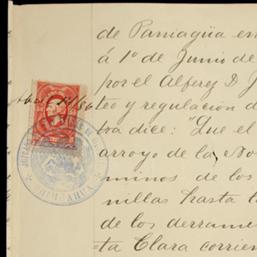 de Paniagüa en
á 1º de Junio de
por el Alferez D. J
leo y regulacion d
tra dice: "Que el
arroyo de la No
minos de los
nillas hasta l
de los derrame
ta Clara corrien
CHIHUAHUA